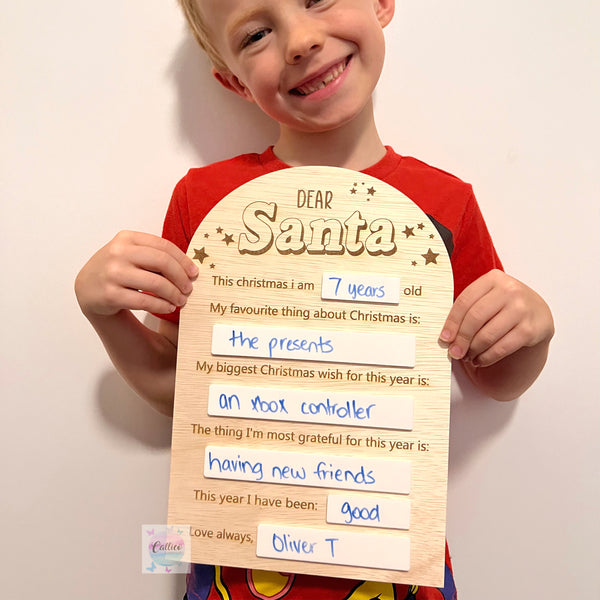 DEAR
Santa
This christmas i am 7 years old
My favourite thing about Christmas is:
the presents
My biggest Christmas wish for this year is:
an xbox controller
The thing I'm most grateful for this year is:
having new friends
This year I have been: good
Love always, Oliver T
Callico